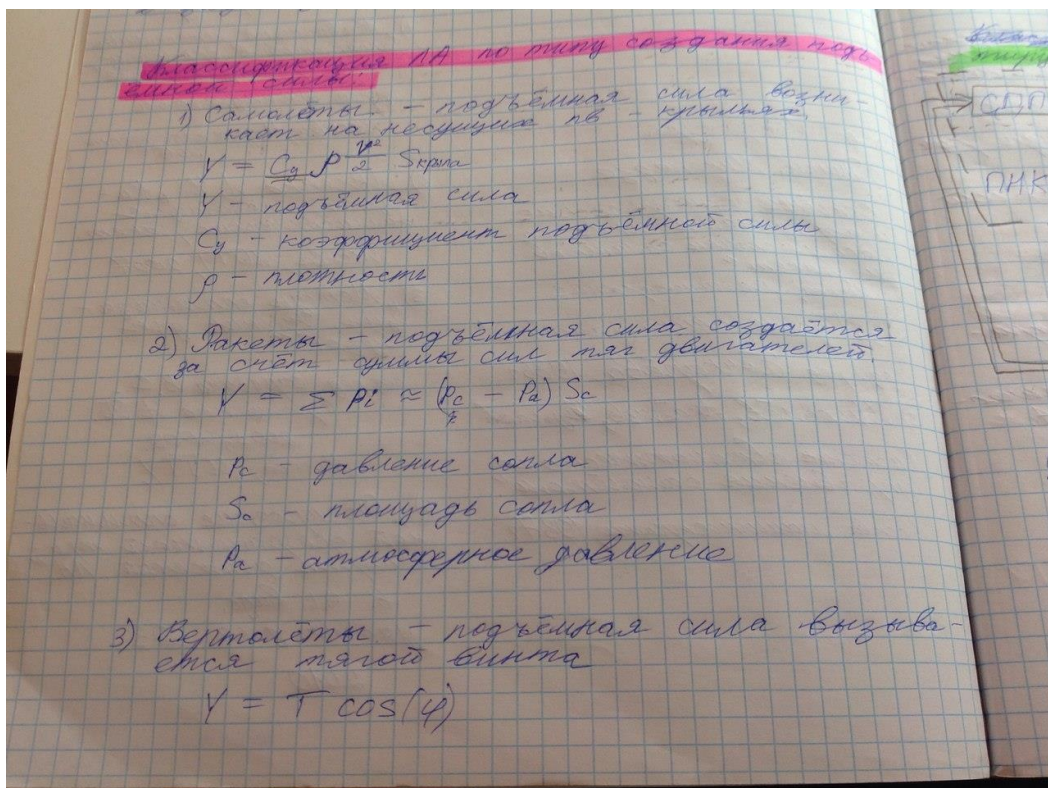 Классификация ЛА по типу создания подъ-
ёмной силы:
1) Самолёты - подъёмная сила возни-
кает на несущих пв - крыльях.
Y = Cy ρ V²/2 Sкрыла
Y - подъёмная сила
Cy - коэффициент подъёмной силы
ρ - плотность
2) Ракеты - подъёмная сила создаётся
за счёт суммы сил тяг двигателей
Y = Σ Pi ≈ (Pc - Pa) Sc
Pc - давление сопла
Sc - площадь сопла
Pa - атмосферное давление
3) Вертолёты - подъёмная сила вызыва-
ется тягой винта
Y = T cos(φ)
ПНК